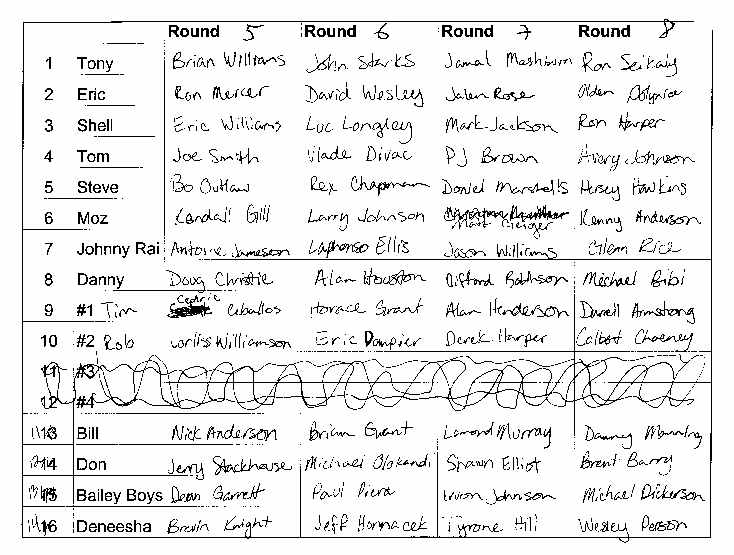 Round 5 Round 6 Round 7 Round 8
1 Tony Brian Williams John Starks Jamal Mashburn Ron Seikaly
2 Eric Ron Mercer David Wesley Jalen Rose Olden Polynice
3 Shell Eric Williams Luc Longley Mark Jackson Ron Harper
4 Tom Joe Smith Vlade Divac PJ Brown Avery Johnson
5 Steve Bo Outlaw Rex Chapman Donyel Marshalls Hersey Hawkins
6 Moz Kendall Gill Larry Johnson Matt Geiger Kenny Anderson
7 Johnny Rai Antoine Jameson Laphonso Ellis Jason Williams Glenn Rice
8 Danny Doug Christie Alan Houston Clifford Robinson Michael Bibi
9 #1 Tim Cedric Ceballos Horace Grant Alan Henderson Darrell Armstrong
10 #2 Rob Corliss Williamson Eric Dampier Derek Harper Calbert Chaeney
11 #3
12 #4
13 Bill Nick Anderson Brian Grant Lamond Murray Danny Manning
14 Don Jerry Stackhouse Michael Olokandi Shawn Elliot Brent Barry
15 Bailey Boys Dean Garrett Paul Pierce Ervin Johnson Michael Dickerson
16 Deneesha Brevin Knight Jeff Hornacek Tyrone Hill Wesley Person